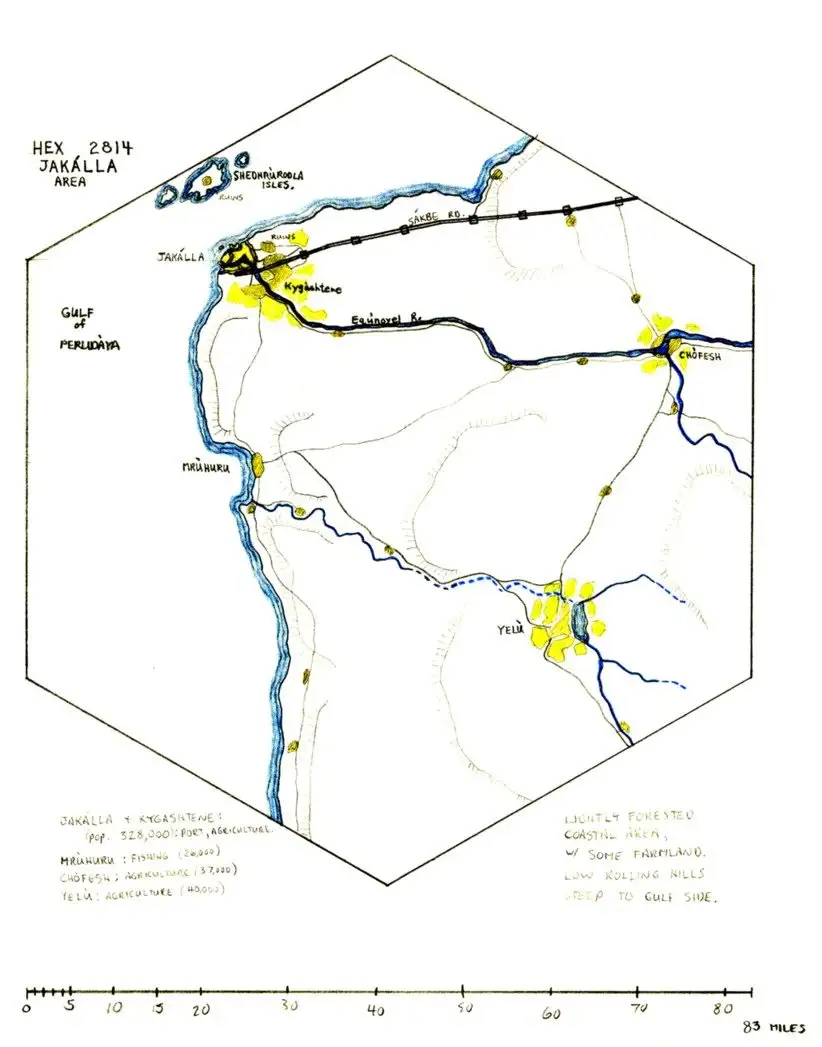 HEX 2814
JAKÁLLA
AREA
SHEDHRÙRODLA
ISLES.
RUINS
SÁKBE RD.
JAKÁLLA
RUINS
Kygashtene
GULF
of
PERLUDÁYA
Equnoyel R.
CHÒFESH
MRÙHURU
YELÙ
JAKÁLLA & KYGASHTENE:
(POP. 328,000): PORT, AGRICULTURE.
MRÙHURU : FISHING (26,000)
CHÒFESH; AGRICULTURE (37,000)
YELÙ: AGRICULTURE (40,000)
LIGHTLY FORESTED
COASTAL AREA,
W/ SOME FARMLAND.
LOW ROLLING HILLS
STEEP TO GULF SIDE.
0 5 10 15 20 30 40 50 60 70 80
83 MILES